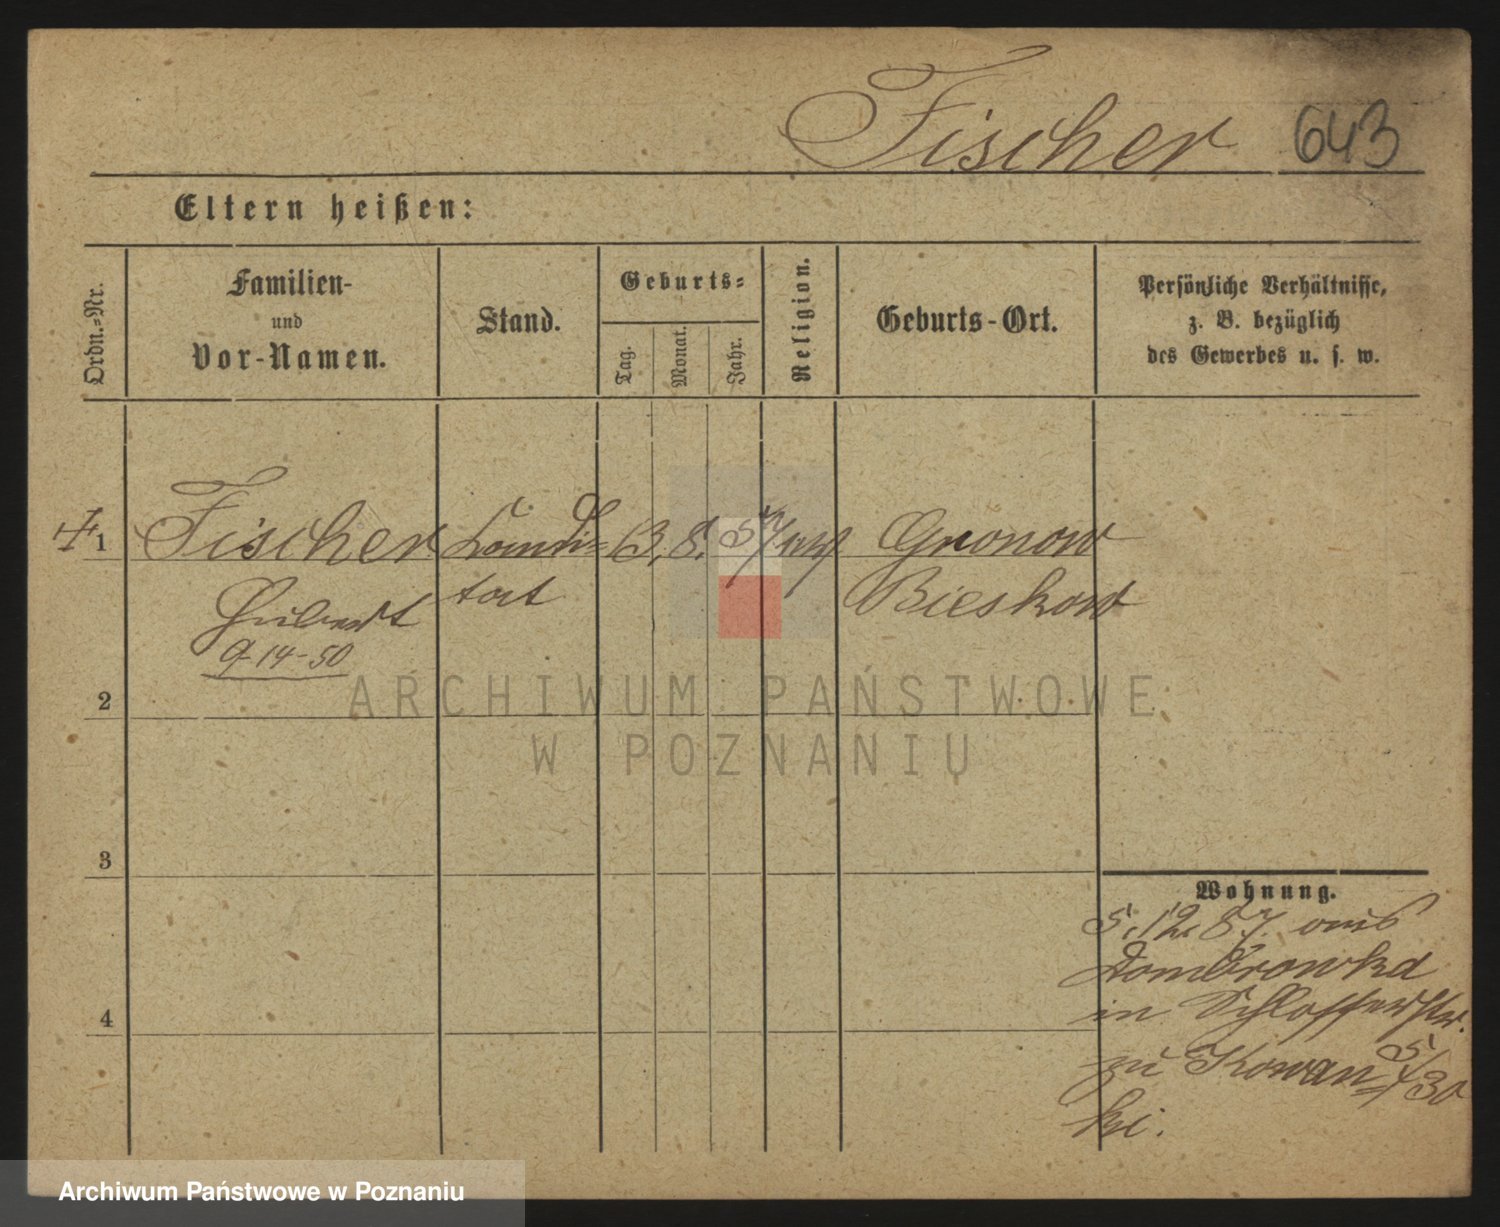 Fischer 643
Eltern heißen:
Ordn.-Nr.
Familien-
und
Vor-Namen.
Stand.
Geburts-
Tag.
Monat.
Jahr.
Religion.
Geburts-Ort.
Persönliche Verhältnisse,
z. B. bezüglich
des Gewerbes u. s. w.
1 Fischer 13. 8. 57 Gronow
Hubert tat Bieskow
9-14-50
2
ARCHIWUM PAŃSTWOWE
W POZNANIU
3
Wohnung.
5. 12. 87. aus
Dombrowka
in Schlosserstr.
4
zu Kowan 5/30
ki.
Archiwum Państwowe w Poznaniu